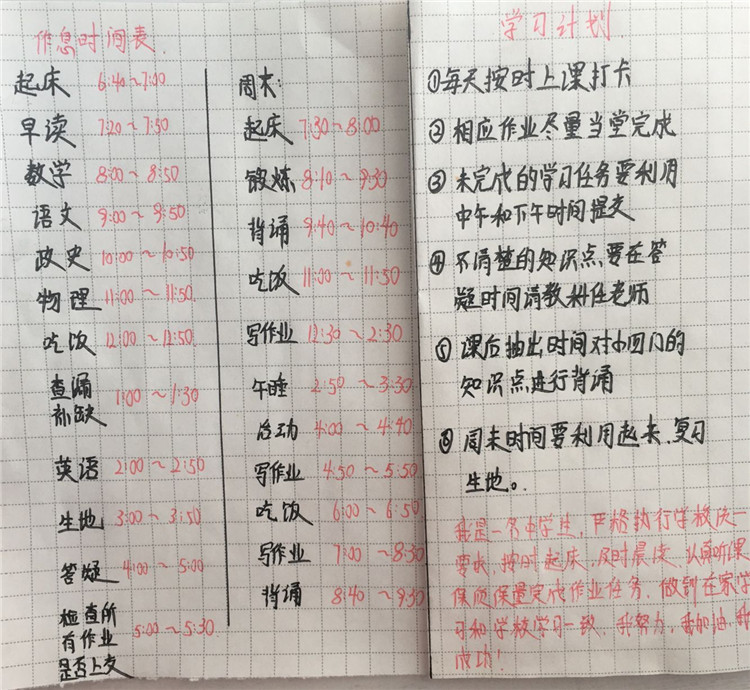 作息时间表
起床 6:40~7:00
早读 7:20~7:50
数学 8:00~8:50
语文 9:00~9:50
政史 10:00~10:50
物理 11:00~11:50
吃饭 12:00~12:50
查漏
补缺 1:00~1:30
英语 2:00~2:50
生地 3:00~3:50
答疑 4:00~5:00
检查所
有作业 5:00~5:30
是否上交
周末:
起床 7:30~8:00
锻炼 8:10~9:30
背诵 9:40~10:40
吃饭 11:00~11:50
写作业 12:30~2:30
午睡 2:50~3:30
活动 4:00~4:40
写作业 4:50~5:50
吃饭 6:00~6:50
写作业 7:00~8:30
背诵 8:40~9:30
学习计划
①每天按时上课打卡
②相应作业尽量当堂完成
③未完成的学习任务要利用
中午和下午时间提交
④不清楚的知识点,要在答
疑时间请教科任老师
⑤课后抽出时间对小四门的
知识点进行背诵
⑥周末时间要利用起来,复习
生地。
我是一名中学生,严格执行学校统一
要求,按时起床,及时晨读,认真听课
保质保量完成作业任务,做到在家学
习和学校学习一致,我努力,我加油,我
成功!